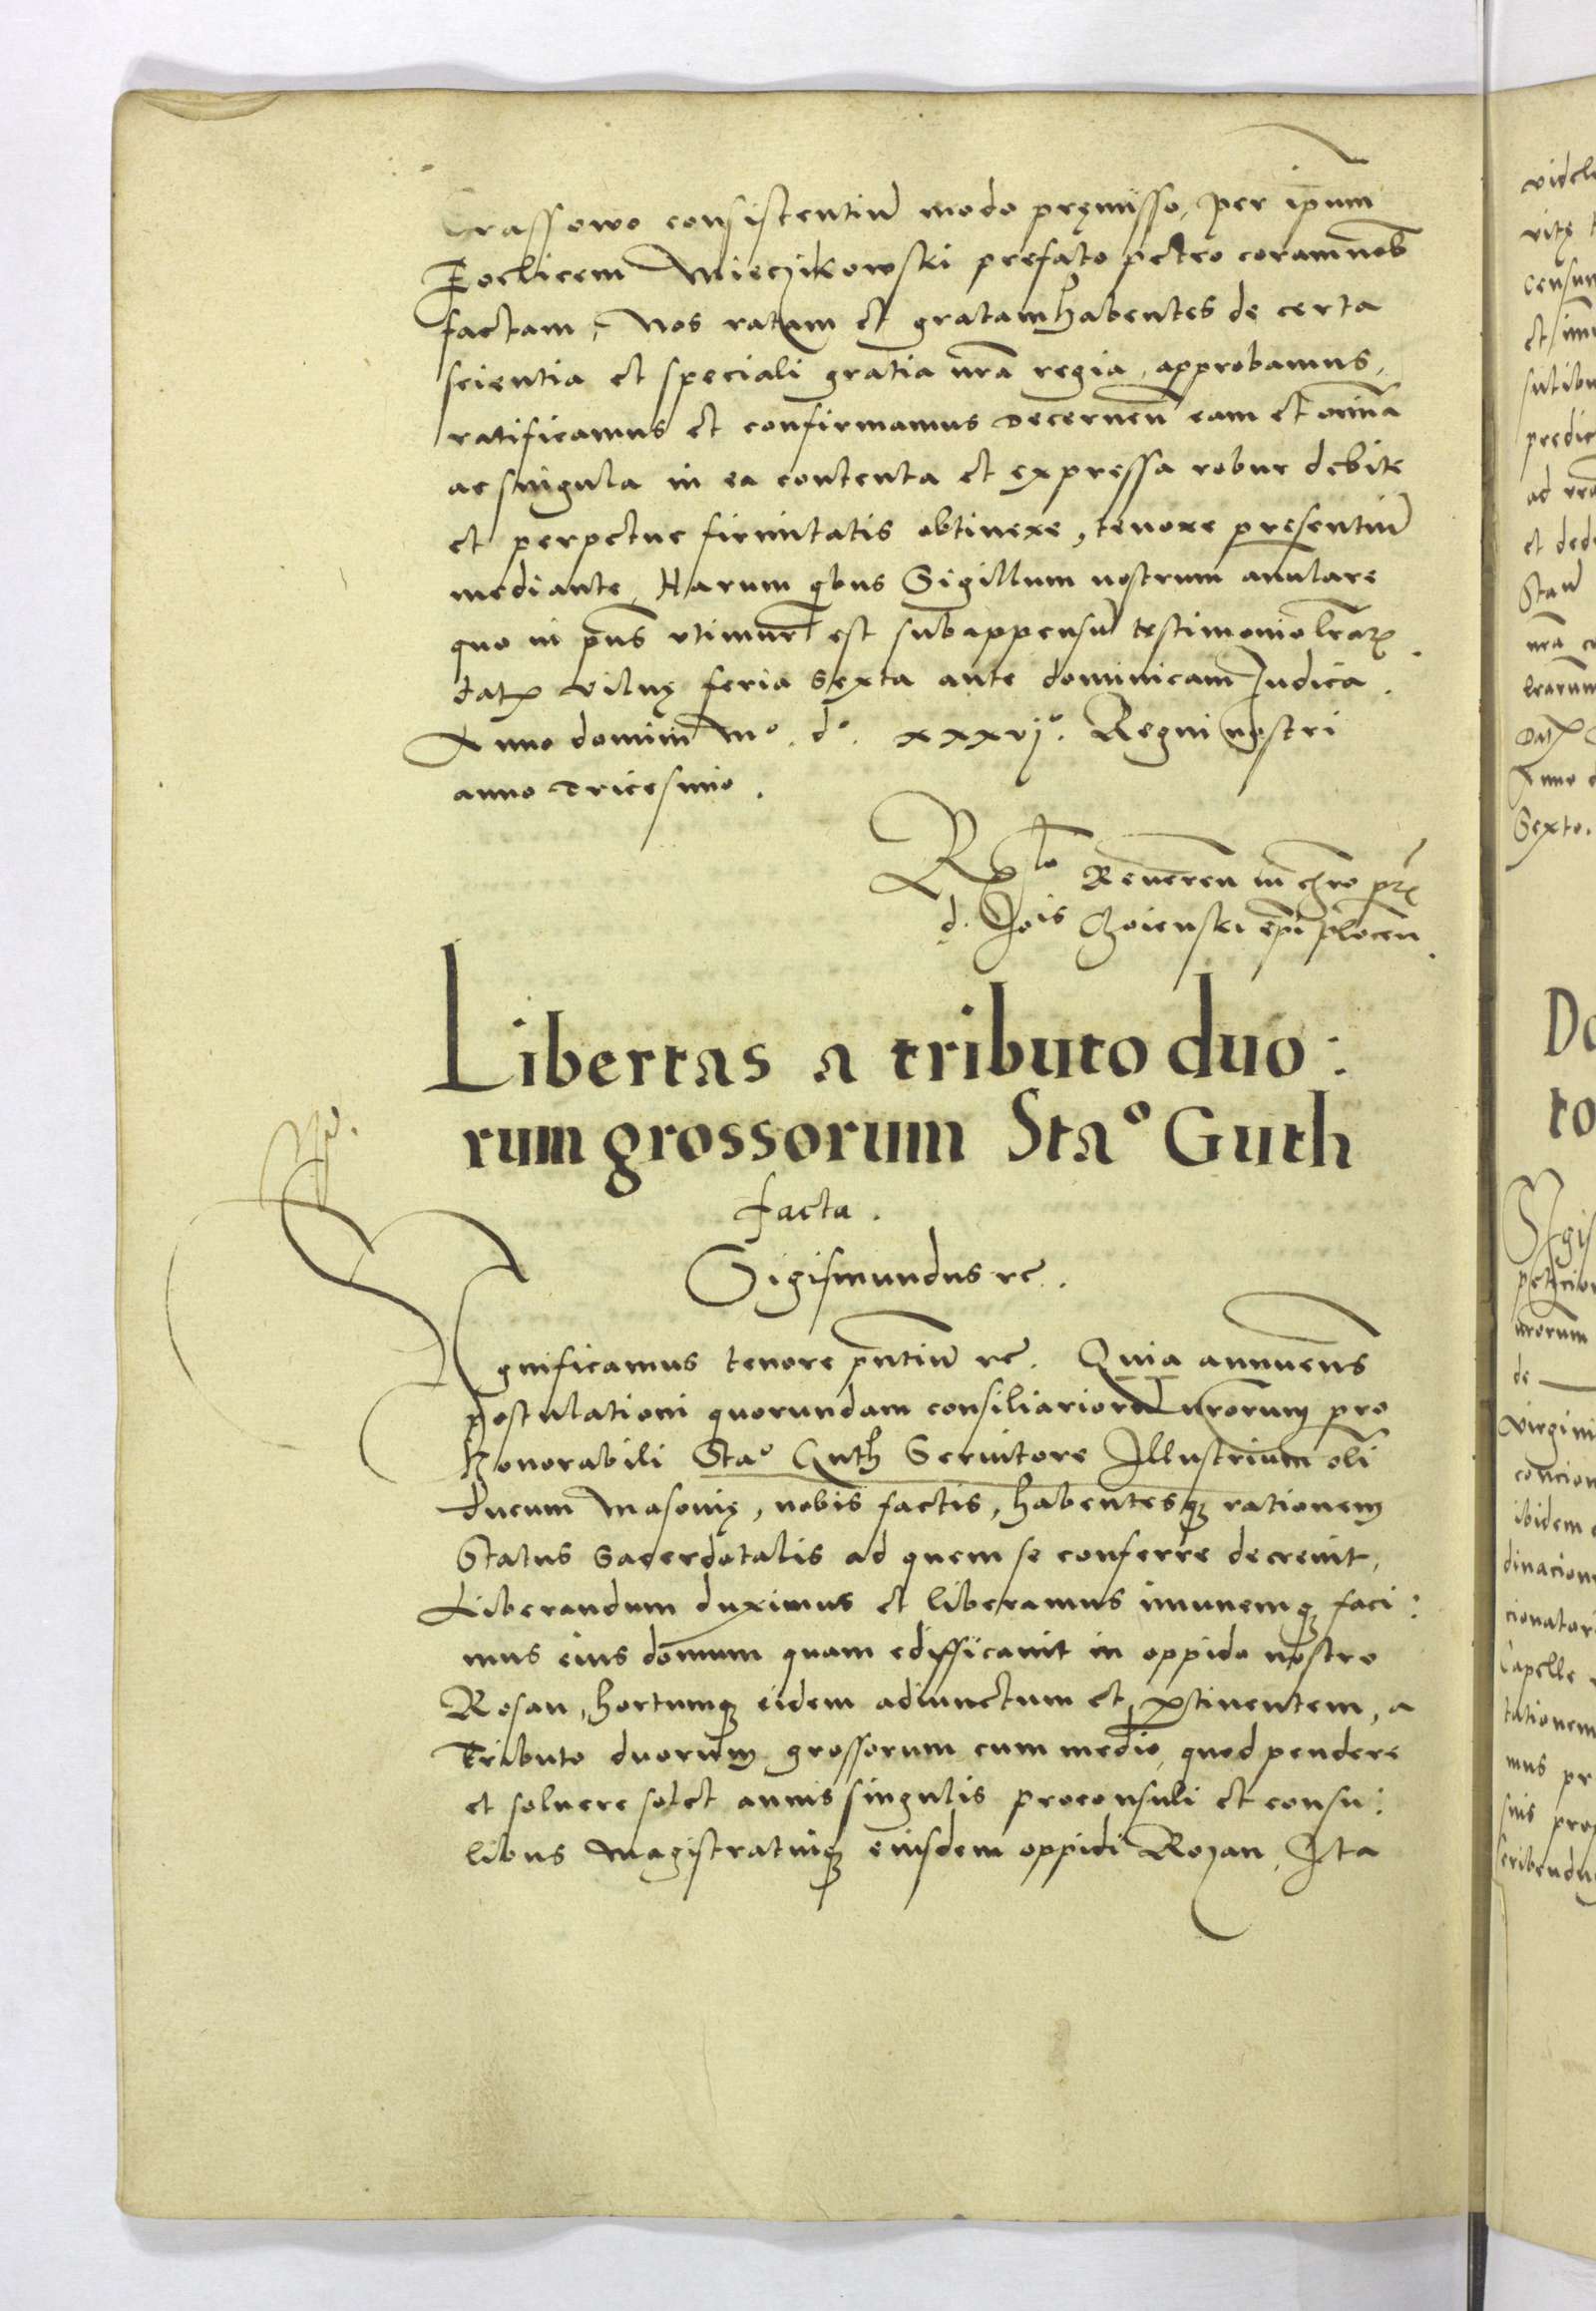 Crassowo consistentiū modo pręmisso, per ipūm
Foelicem Mieczikowski prefato petro coram nob̄
factam, Nos ratam et gratam habentes de certa
scientia et speciali gratia nr̄a regia, approbamus,
ratificamus et confirmamus decernen̄ eam et om̄ia
ac singula in ea contenta et expressa robur debite
et perpetue firmitatis obtinere, tenore presentiū
mediante, Harum qbus Sigillum nostrum anulare
quo in pn̄s utimur est subappensū testimonio lr̄aꝝ.
datꝝ Vilnę feria sexta ante dominicam Judica.
Anno domini Mº. dº. xxxvjº. Regni nostri
anno tricesimo.
Rlº Reveren̄ in chr̄o pr̄is
d. Joīs Choienski ep̄i plocen̄.
Libertas a tributo duo:
rum grossorum Staº Guth
facta.
Sigismundus rc̄.
Significamus tenore pn̄tiū rc̄. Quia annuen̄s
postulationi quorundam consiliariorū nr̄orum pro
Honorabili Staº Guth Servitore Illustrium oli̅
ducum Masovię, nobis factis, habentesqꝫ rationem
Status Sacerdotalis ad quem se conferre decrevit,
Liberandum duximus et liberamus imunemqꝫ faci:
mus eius domum quam edifficavit in oppido nostro
Rosan, hortumqꝫ eidem adiunctum et ꝑtinentem, a
Tributo duorum grossorum cum medio, quod pendere
et solvere solet annis singulis proconsuli et consu:
libus Magistratuiqꝫ eiusdem oppidi Rozan, Ita